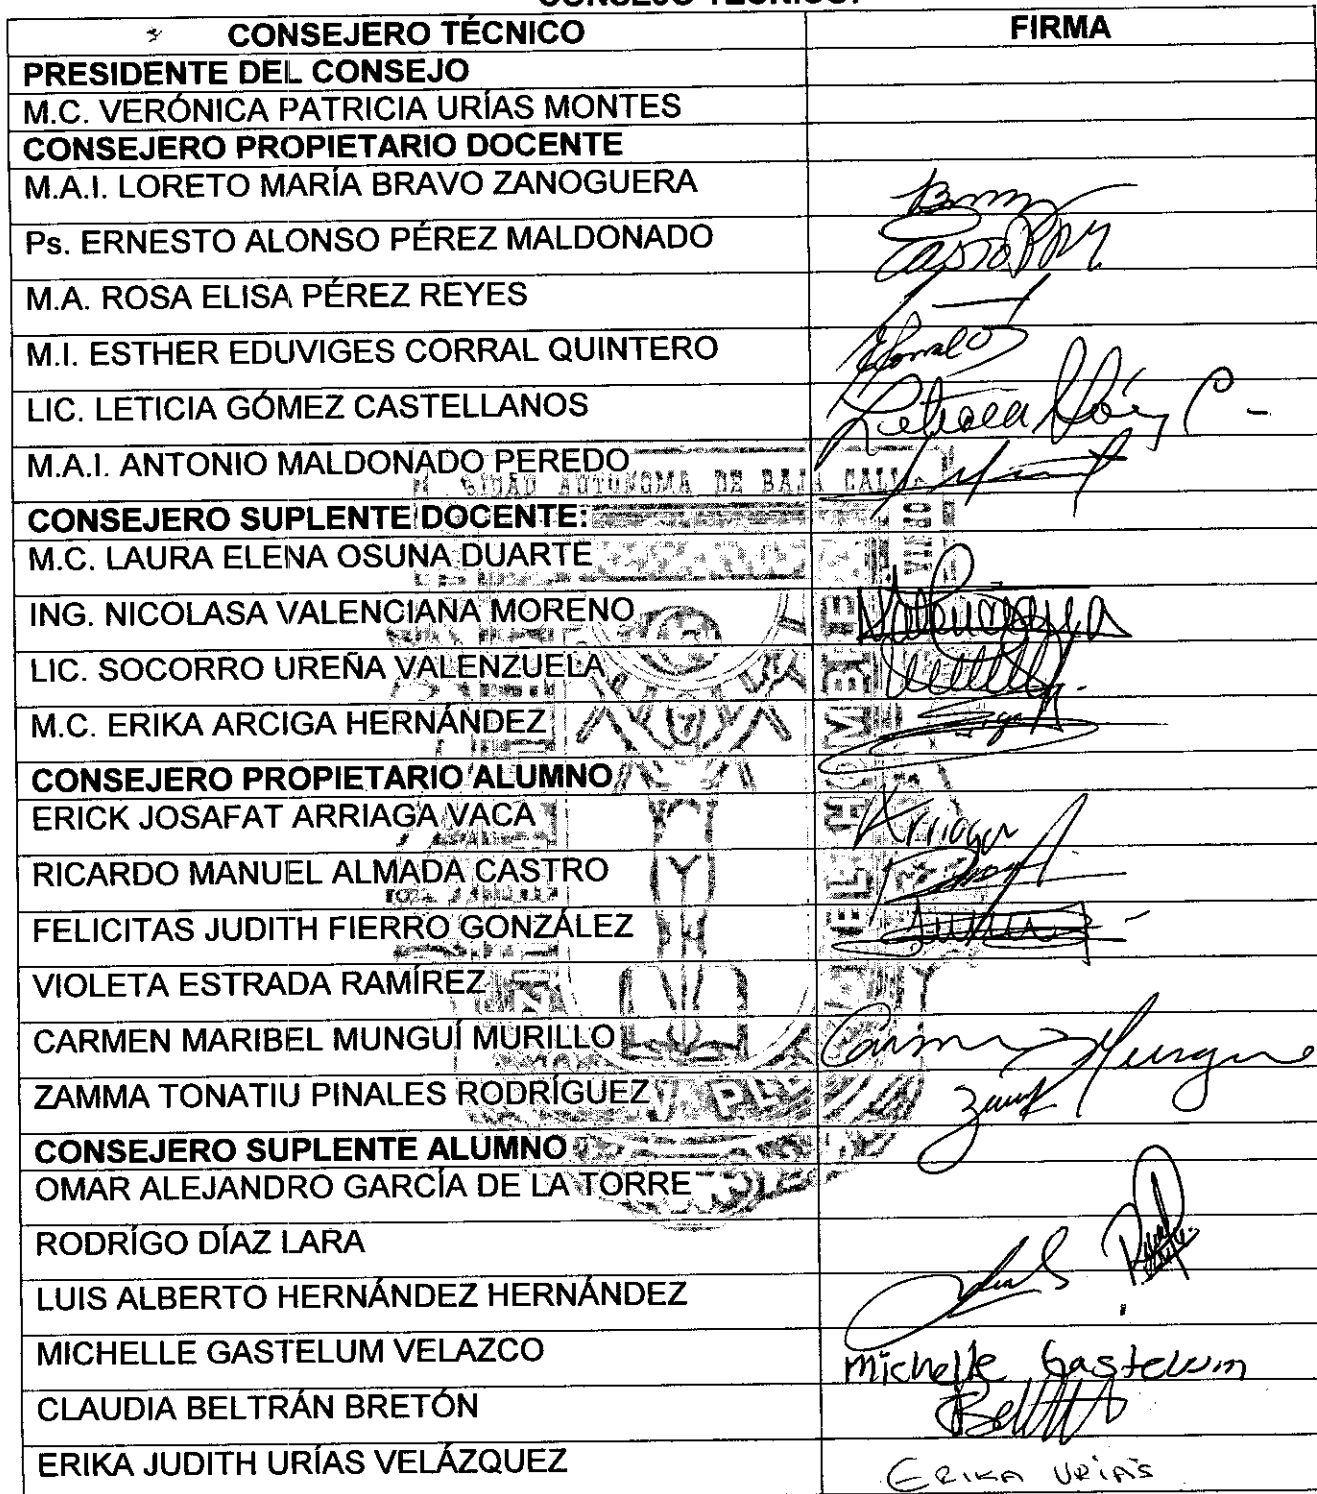 CONSEJO TÉCNICO:
CONSEJERO TÉCNICO FIRMA
PRESIDENTE DEL CONSEJO
M.C. VERÓNICA PATRICIA URÍAS MONTES
CONSEJERO PROPIETARIO DOCENTE
M.A.I. LORETO MARÍA BRAVO ZANOGUERA
Ps. ERNESTO ALONSO PÉREZ MALDONADO
M.A. ROSA ELISA PÉREZ REYES
M.I. ESTHER EDUVIGES CORRAL QUINTERO
LIC. LETICIA GÓMEZ CASTELLANOS
M.A.I. ANTONIO MALDONADO PEREDO
AUTONOMA DE BAJA
CONSEJERO SUPLENTE DOCENTE:
M.C. LAURA ELENA OSUNA DUARTE
ING. NICOLASA VALENCIANA MORENO
LIC. SOCORRO UREÑA VALENZUELA
M.C. ERIKA ARCIGA HERNÁNDEZ
CONSEJERO PROPIETARIO ALUMNO
ERICK JOSAFAT ARRIAGA VACA
RICARDO MANUEL ALMADA CASTRO
FELICITAS JUDITH FIERRO GONZÁLEZ
VIOLETA ESTRADA RAMÍREZ
CARMEN MARIBEL MUNGUÍ MURILLO
ZAMMA TONATIU PINALES RODRÍGUEZ
CONSEJERO SUPLENTE ALUMNO
OMAR ALEJANDRO GARCÍA DE LA TORRE
RODRÍGO DÍAZ LARA
LUIS ALBERTO HERNÁNDEZ HERNÁNDEZ
MICHELLE GASTELUM VELAZCO Michelle Gastelum
CLAUDIA BELTRÁN BRETÓN
ERIKA JUDITH URÍAS VELÁZQUEZ ERIKA URIAS